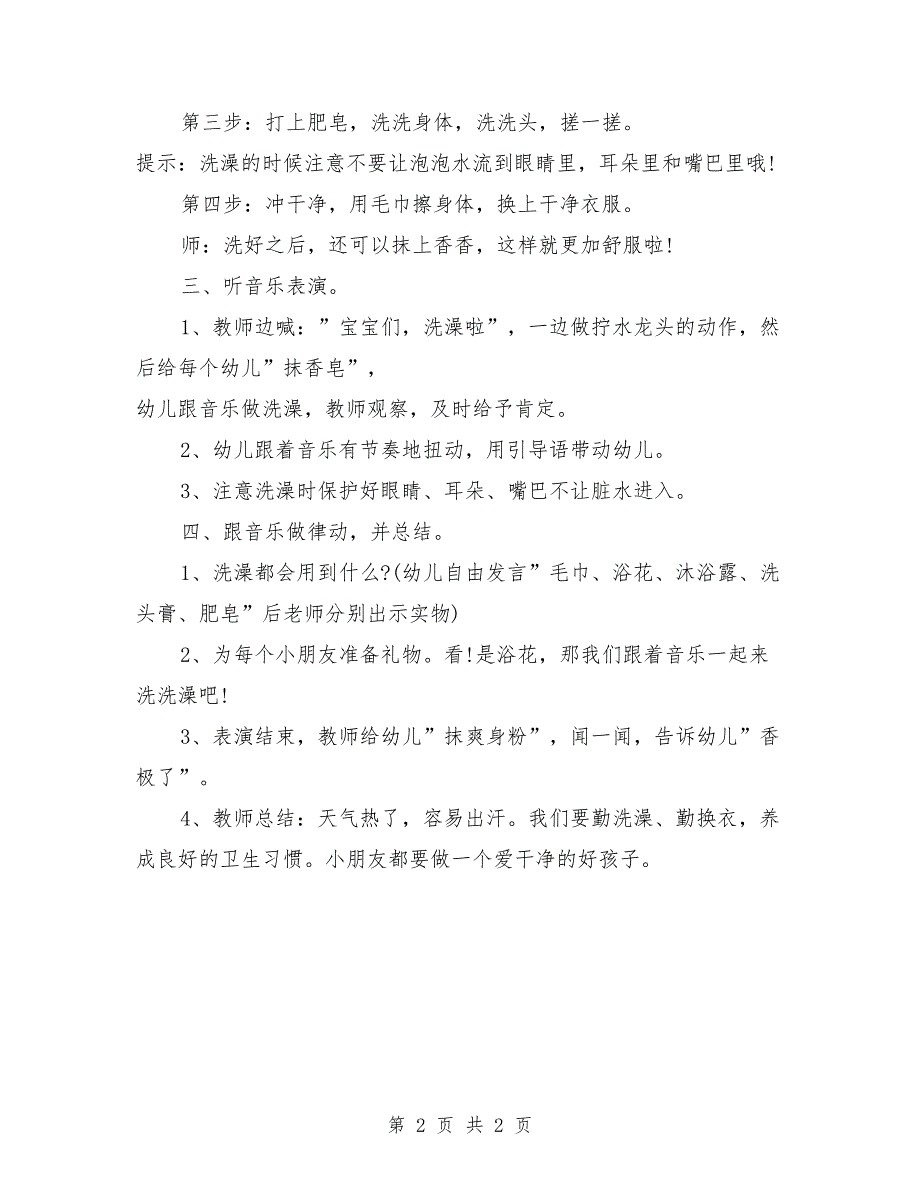 第三步：打上肥皂，洗洗身体，洗洗头，搓一搓。
提示：洗澡的时候注意不要让泡泡水流到眼睛里，耳朵里和嘴巴里哦!
第四步：冲干净，用毛巾擦身体，换上干净衣服。
师：洗好之后，还可以抹上香香，这样就更加舒服啦!
三、听音乐表演。
1、教师边喊：”宝宝们，洗澡啦”，一边做拧水龙头的动作，然
后给每个幼儿”抹香皂”，
幼儿跟音乐做洗澡，教师观察，及时给予肯定。
2、幼儿跟着音乐有节奏地扭动，用引导语带动幼儿。
3、注意洗澡时保护好眼睛、耳朵、嘴巴不让脏水进入。
四、跟音乐做律动，并总结。
1、洗澡都会用到什么?(幼儿自由发言”毛巾、浴花、沐浴露、洗
头膏、肥皂”后老师分别出示实物)
2、为每个小朋友准备礼物。看!是浴花，那我们跟着音乐一起来
洗洗澡吧!
3、表演结束，教师给幼儿”抹爽身粉”，闻一闻，告诉幼儿”香
极了”。
4、教师总结：天气热了，容易出汗。我们要勤洗澡、勤换衣，养
成良好的卫生习惯。小朋友都要做一个爱干净的好孩子。
第 2 页 共 2 页